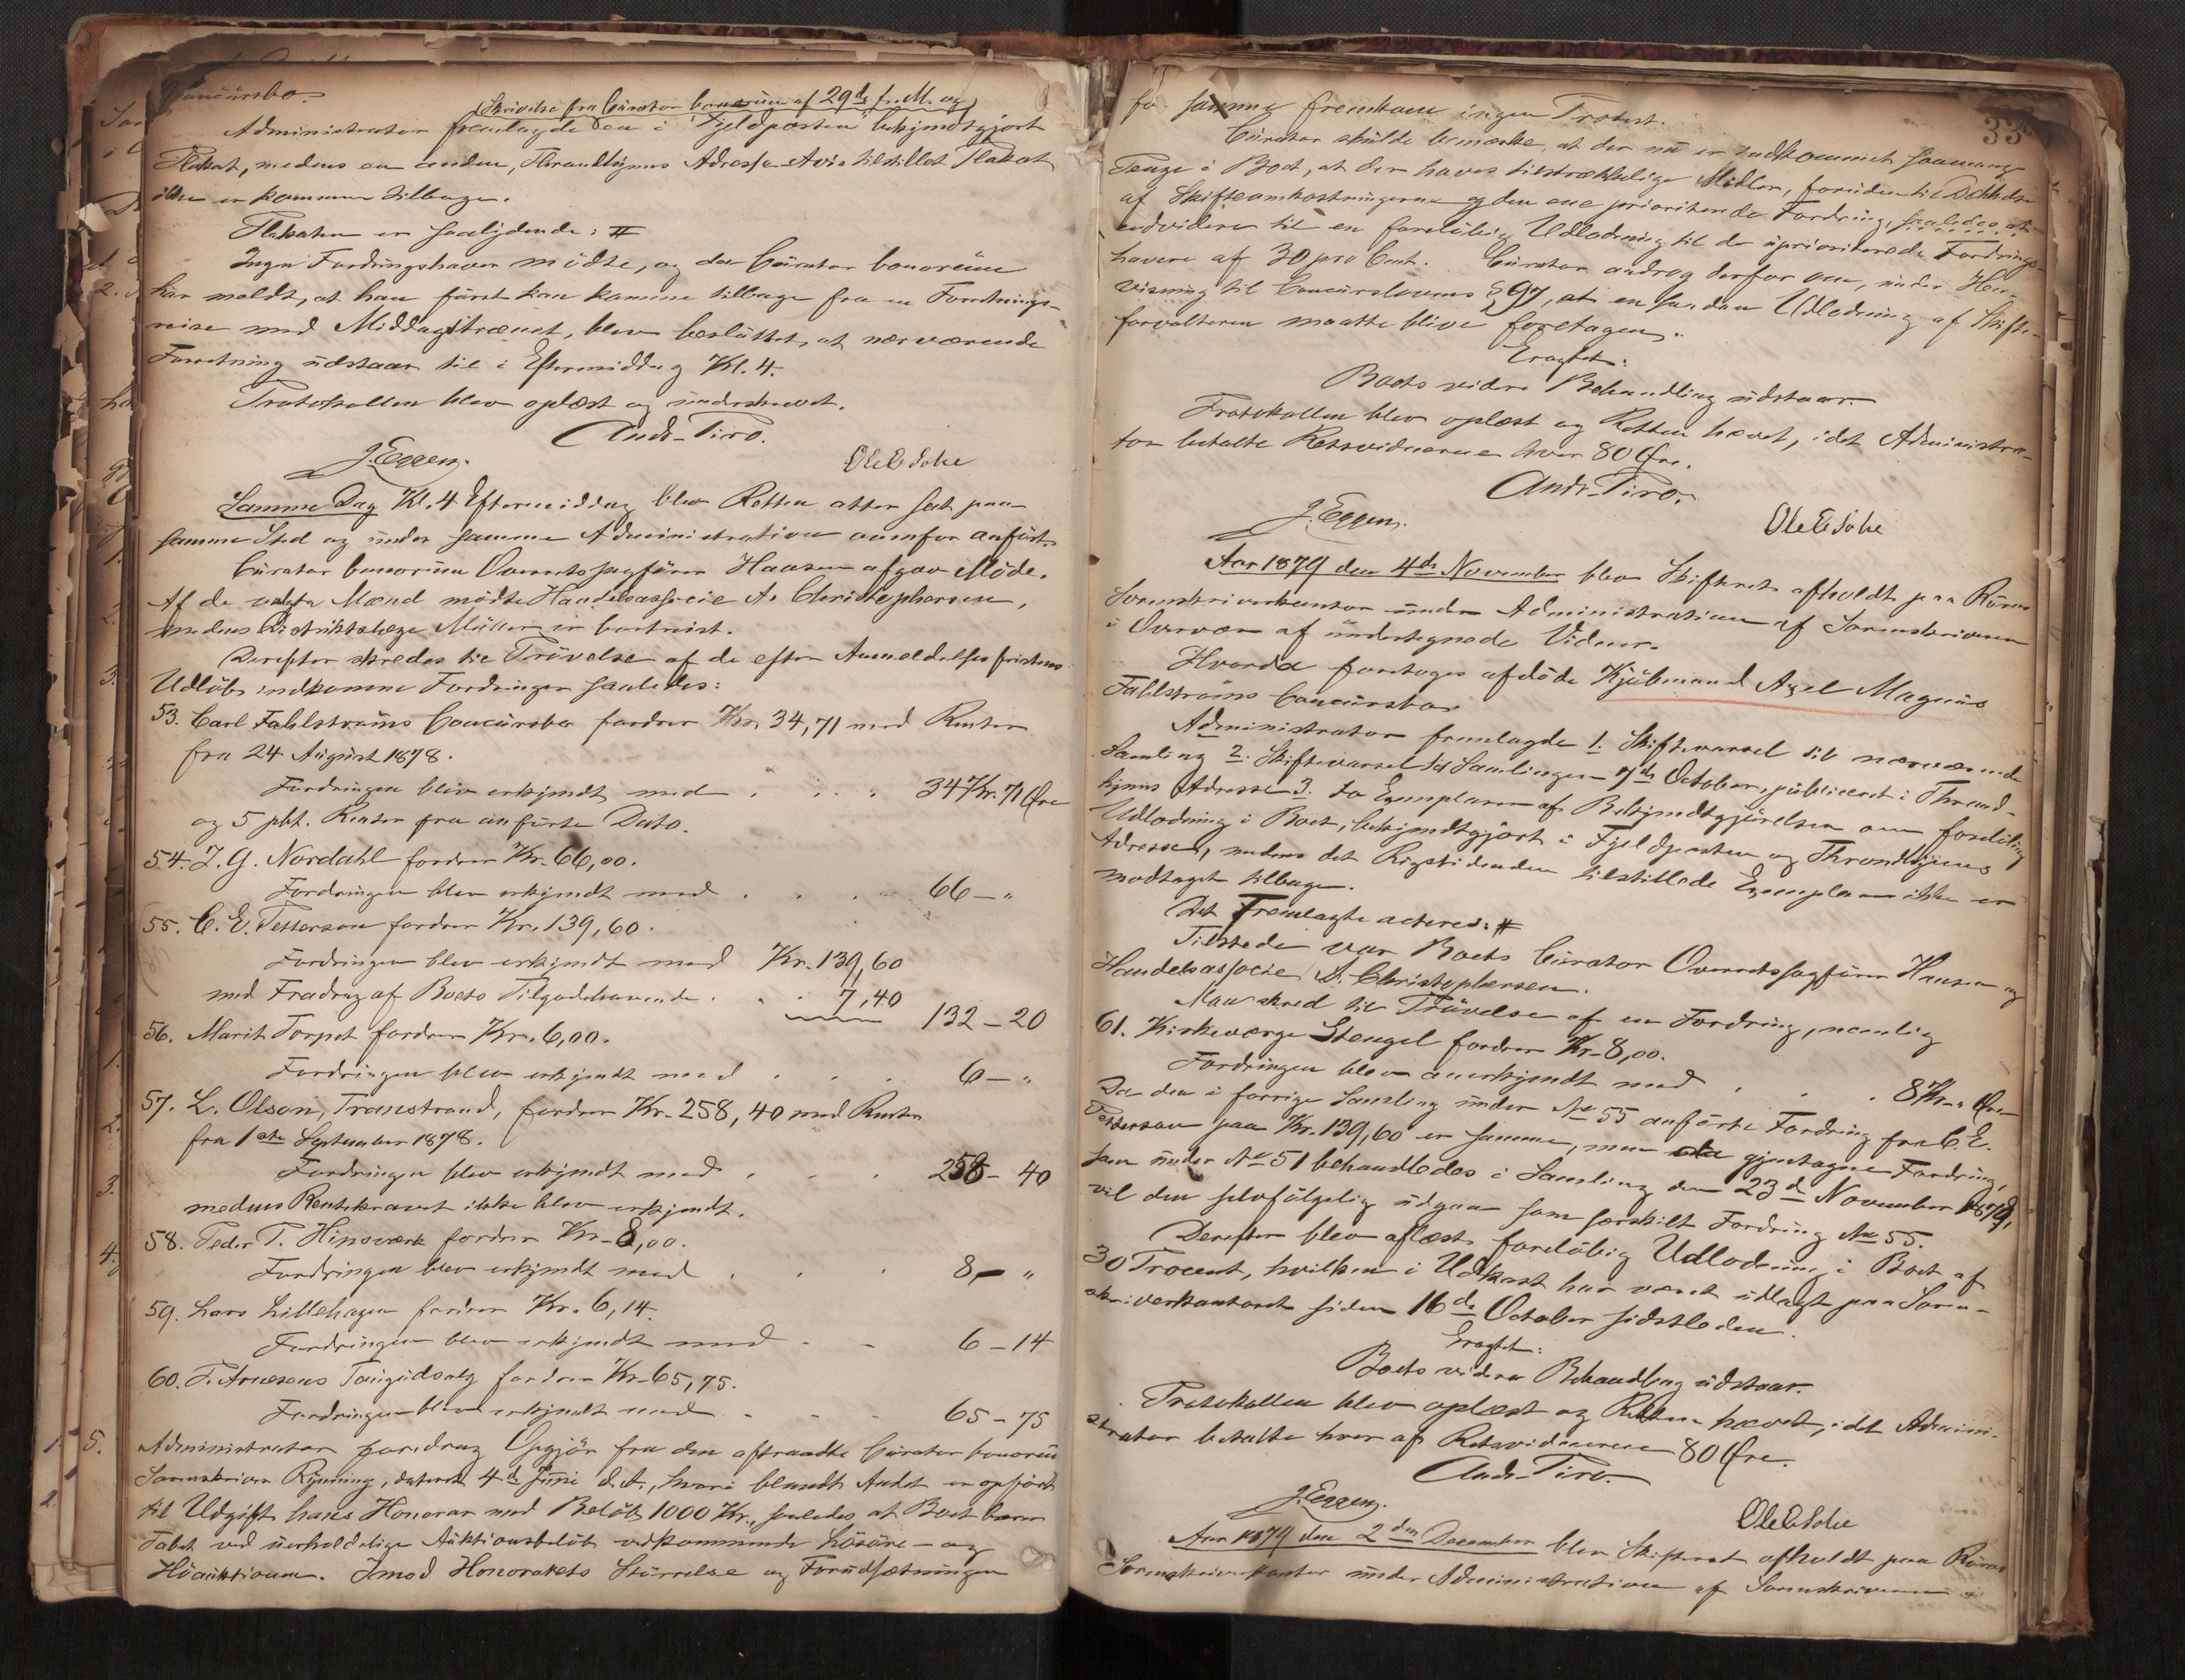 Concursbo.
Skrivelse fra Curator bonorum af 29de f. M. og
Administrator fremlagde en i "Fjeldposten" bekjendtgjort
Plakat, medens en anden, Throndhjems Adresse-Avis tilstillet Plakat
ikke er kommen tilbage.
Plakaten er saalydende: #
Ingen Fordringshaver mødte, og da Curator bonorum
har meldt, at han først kan komme tilbage fra en Forretnings-
reise med Middagstrænet, blev besluttet, at nærværende
Forretning udstaar til i Eftermiddag Kl. 4.
Protokollen blev oplæst og underskrevet.
Andr. Piro.
J. Eggen. Ole E Sohe
Samme Dag Kl. 4 Eftermiddag blev Retten atter sat paa
samme Sted og under samme Administration ovenfor anført.
Curator bonorum Overretssagfører Hansen afgav Møde.
Af de valgte Mænd mødte Handelsassocie A. Christophersen,
medens Distriktslæge Müller er bortreist.
Derefter skredes til Prøvelse af de efter Anmeldelsesfristens
Udløb indkomne Fordringer saaledes:
53. Carl Fahlstrøms Concursbo fordrer Kr. 34,71 med Renter
fra 24 August 1878.
Fordringen blev erkjendt med . . . 34 Kr. 71 Øre
og 5 pCt. Renter fra anførte Dato.
54. J. G. Nordahl fordrer Kr. 66,00.
Fordringen blev erkjendt med . . . 66 - "
55. C. E. Petterson fordrer Kr. 139,60.
Fordringen blev erkjendt med Kr. 139,60
med Fradrag af Boets Tilgodehavende . . 7,40 132 - 20
56. Marit Torpet fordrer Kr. 6,00.
Fordringen blev erkjendt med . . . 6 - "
57. L. Olson, Transtrand, fordrer Kr. 258,40 med Renter
fra 1ste September 1878.
Fordringen blev erkjendt med . . . 258 - 40
medens Rentekravet ikke blev erkjendt.
58. Peder T. Hinsværk fordrer Kr. 8,00.
Fordringen blev erkjendt med . . . 8 - "
59. Lars Lillehagen fordrer Kr. 6,14.
Fordringen blev erkjendt med - - 6 - 14
60. P. Arnesens Tougudsalg fordrer Kr. 65,75.
Fordringen blev erkjendt med - - - 65 - 75
Administrator foredrog Opgjør fra den aftraadte Curator bonorum
Sorenskriver Rynning, dateret 4de Juni d. A., hvori blandt Andet er opført
til Udgift hans Honorar med Beløb 1000 Kr., saaledes at Boet bærer
Tabet ved uerholdelige Auktionsbeløb vedkommende Løsøre- og
Høauktionen. Imod Honorarets Størrelse og Forudsætningen
33
for samme fremkom ingen Protest.
Curator skulde bemærke, at der nu er indkommet saamange
Penge i Boet, at der haves tilstrækkelige Midler, foruden til Dækkelse
af Skifteomkostningerne og den ene prioriterede Fordring, saaledes at
endvidere til en foreløbig Udlodning til de uprioriterede Fordrings-
havere af 30 pro Cent. Curator androg derfor om, under Hen-
visning til Concurslovens § 97, at en saadan Udlodning af Skifte-
forvalteren maatte blive foretagen.
Eragtet:
Boets videre Behandling udstaar.
Protokollen blev oplæst og Retten hævet, idet Administra-
tor betalte Retsvidnerne hver 80 Øre.
Andr. Piro.
J. Eggen. Ole E Sohe
Aar 1879 den 4de November blev Skifteret afholdt paa Røros
Sorenskriverkontor under Administration af Sorenskriveren
i Overvær af undertegnede Vidner.
Hvorda foretoges afdøde Kjøbmand Axel Magnus
Fahlstrøms Concursbo.
Administrator fremlagde 1. Skiftevarsel til nærværende
Samling 2. Skiftevarsel til Samlingen 7de October, publiceret i Thrond-
hjems Adresse 3. to Exemplarer af Bekjendtgjørelsen om foreløbig
Udlodning i Boet, bekjendtgjort i Fjeldposten og Throndhjems
Adresse, medens det Rigstidenden tilstillede Exemplar ikke er
modtaget tilbage.
Det Fremlagte acteres: #
Tilstede var Boets Curator Overretssagfører Hansen og
Handelsassocie A. Christophersen.
Man skred til Prøvelse af en Fordring, nemlig
61. Kirkeværge Stengel fordrer Kr. 8,00.
Fordringen blev anerkjendt med . . . 8 Kr. " Øre
Da den i forrige Samling under No 55 anførte Fordring fra C. E.
Petterson paa Kr. 139,60 er samme, men gjentagne Fordring,
som under No 51 behandledes i Samling den 23de November 1878,
vil den selvfølgelig udgaa som særskilt Fordring No 55.
Derefter blev oplæst foreløbig Udlodning i Boet af
30 Procent, hvilken i Udkast har været udlagt paa Soren-
skriverkontoret siden 16de October sidstleden.
Eragtet:
Boets videre Behandling udstaar.
Protokollen blev oplæst og Retten hævet, idet Admini-
strator betalte hver af Retsvidnerne 80 Øre.
Andr. Piro.
J. Eggen. Ole E Sohe
Aar 1879 den 2den December blev Skifteret afholdt paa Røros
Sorenskriverkontor under Administration af Sorenskriveren i